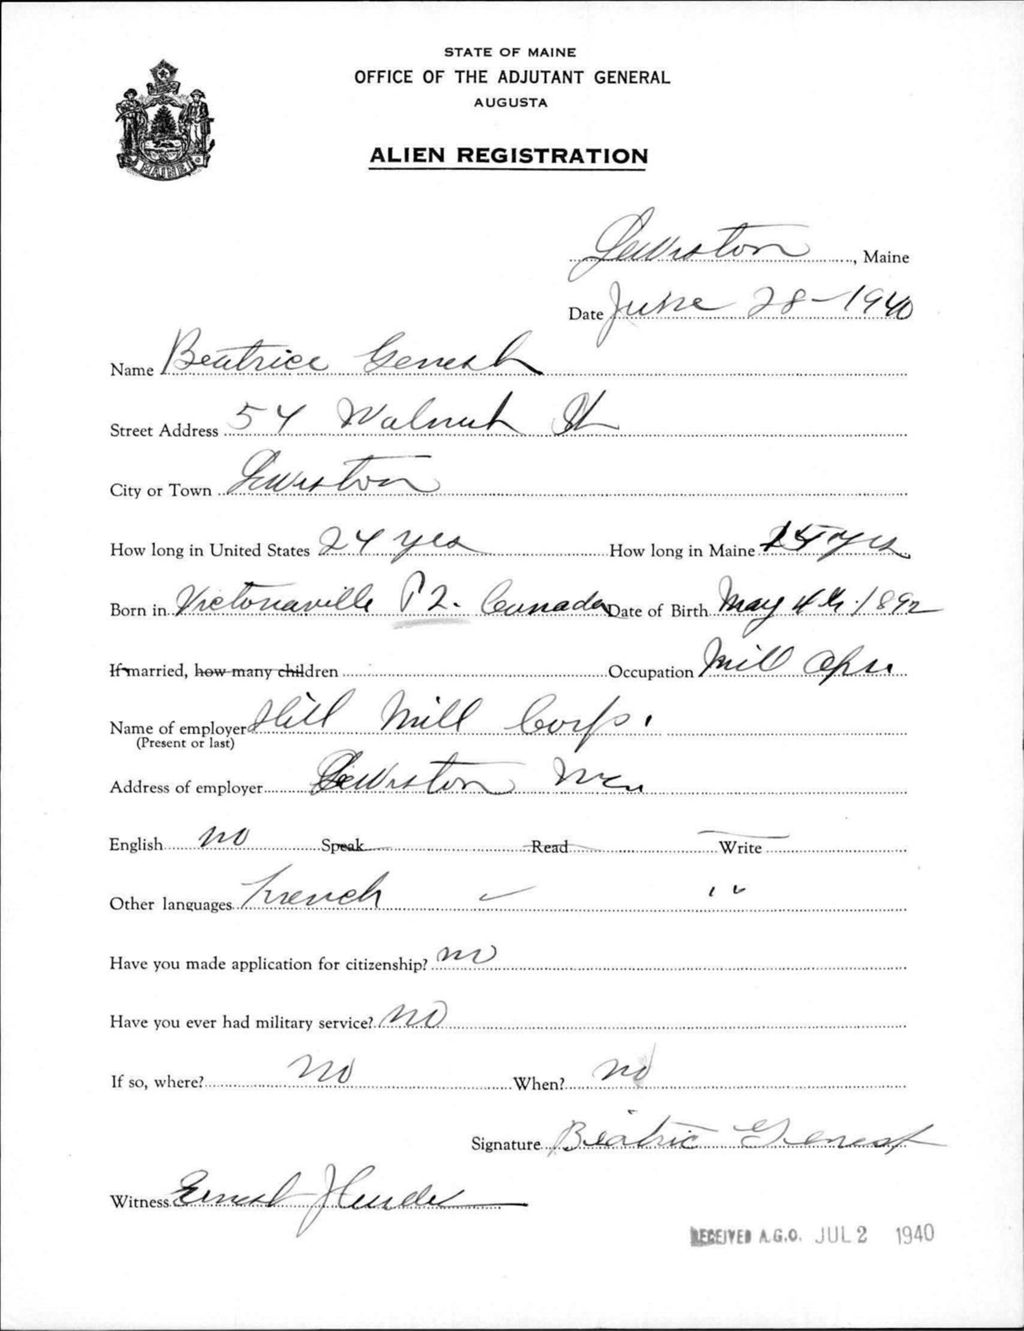 STATE OF MAINE
OFFICE OF THE ADJUTANT GENERAL
AUGUSTA
ALIEN REGISTRATION
MAINE
Lewiston, Maine
Date June 28-1940
Name Beatrice Genest
Street Address 54 Walnut St
City or Town Lewiston
How long in United States 24 yrs How long in Maine yrs
Born in Victoriaville P2. Canada Date of Birth May 4th 1892
If married, how many children Occupation Mill Opr.
Name of employer Hill Mill Corp.
(Present or last)
Address of employer Lewiston Me
English no Speak Read Write
Other languages French ✓ " "
Have you made application for citizenship? no
Have you ever had military service? no
If so, where? no When? no
Signature Béatric Genest
Witness Ernest J
RECEIVED A.G.O. JUL 2 1940